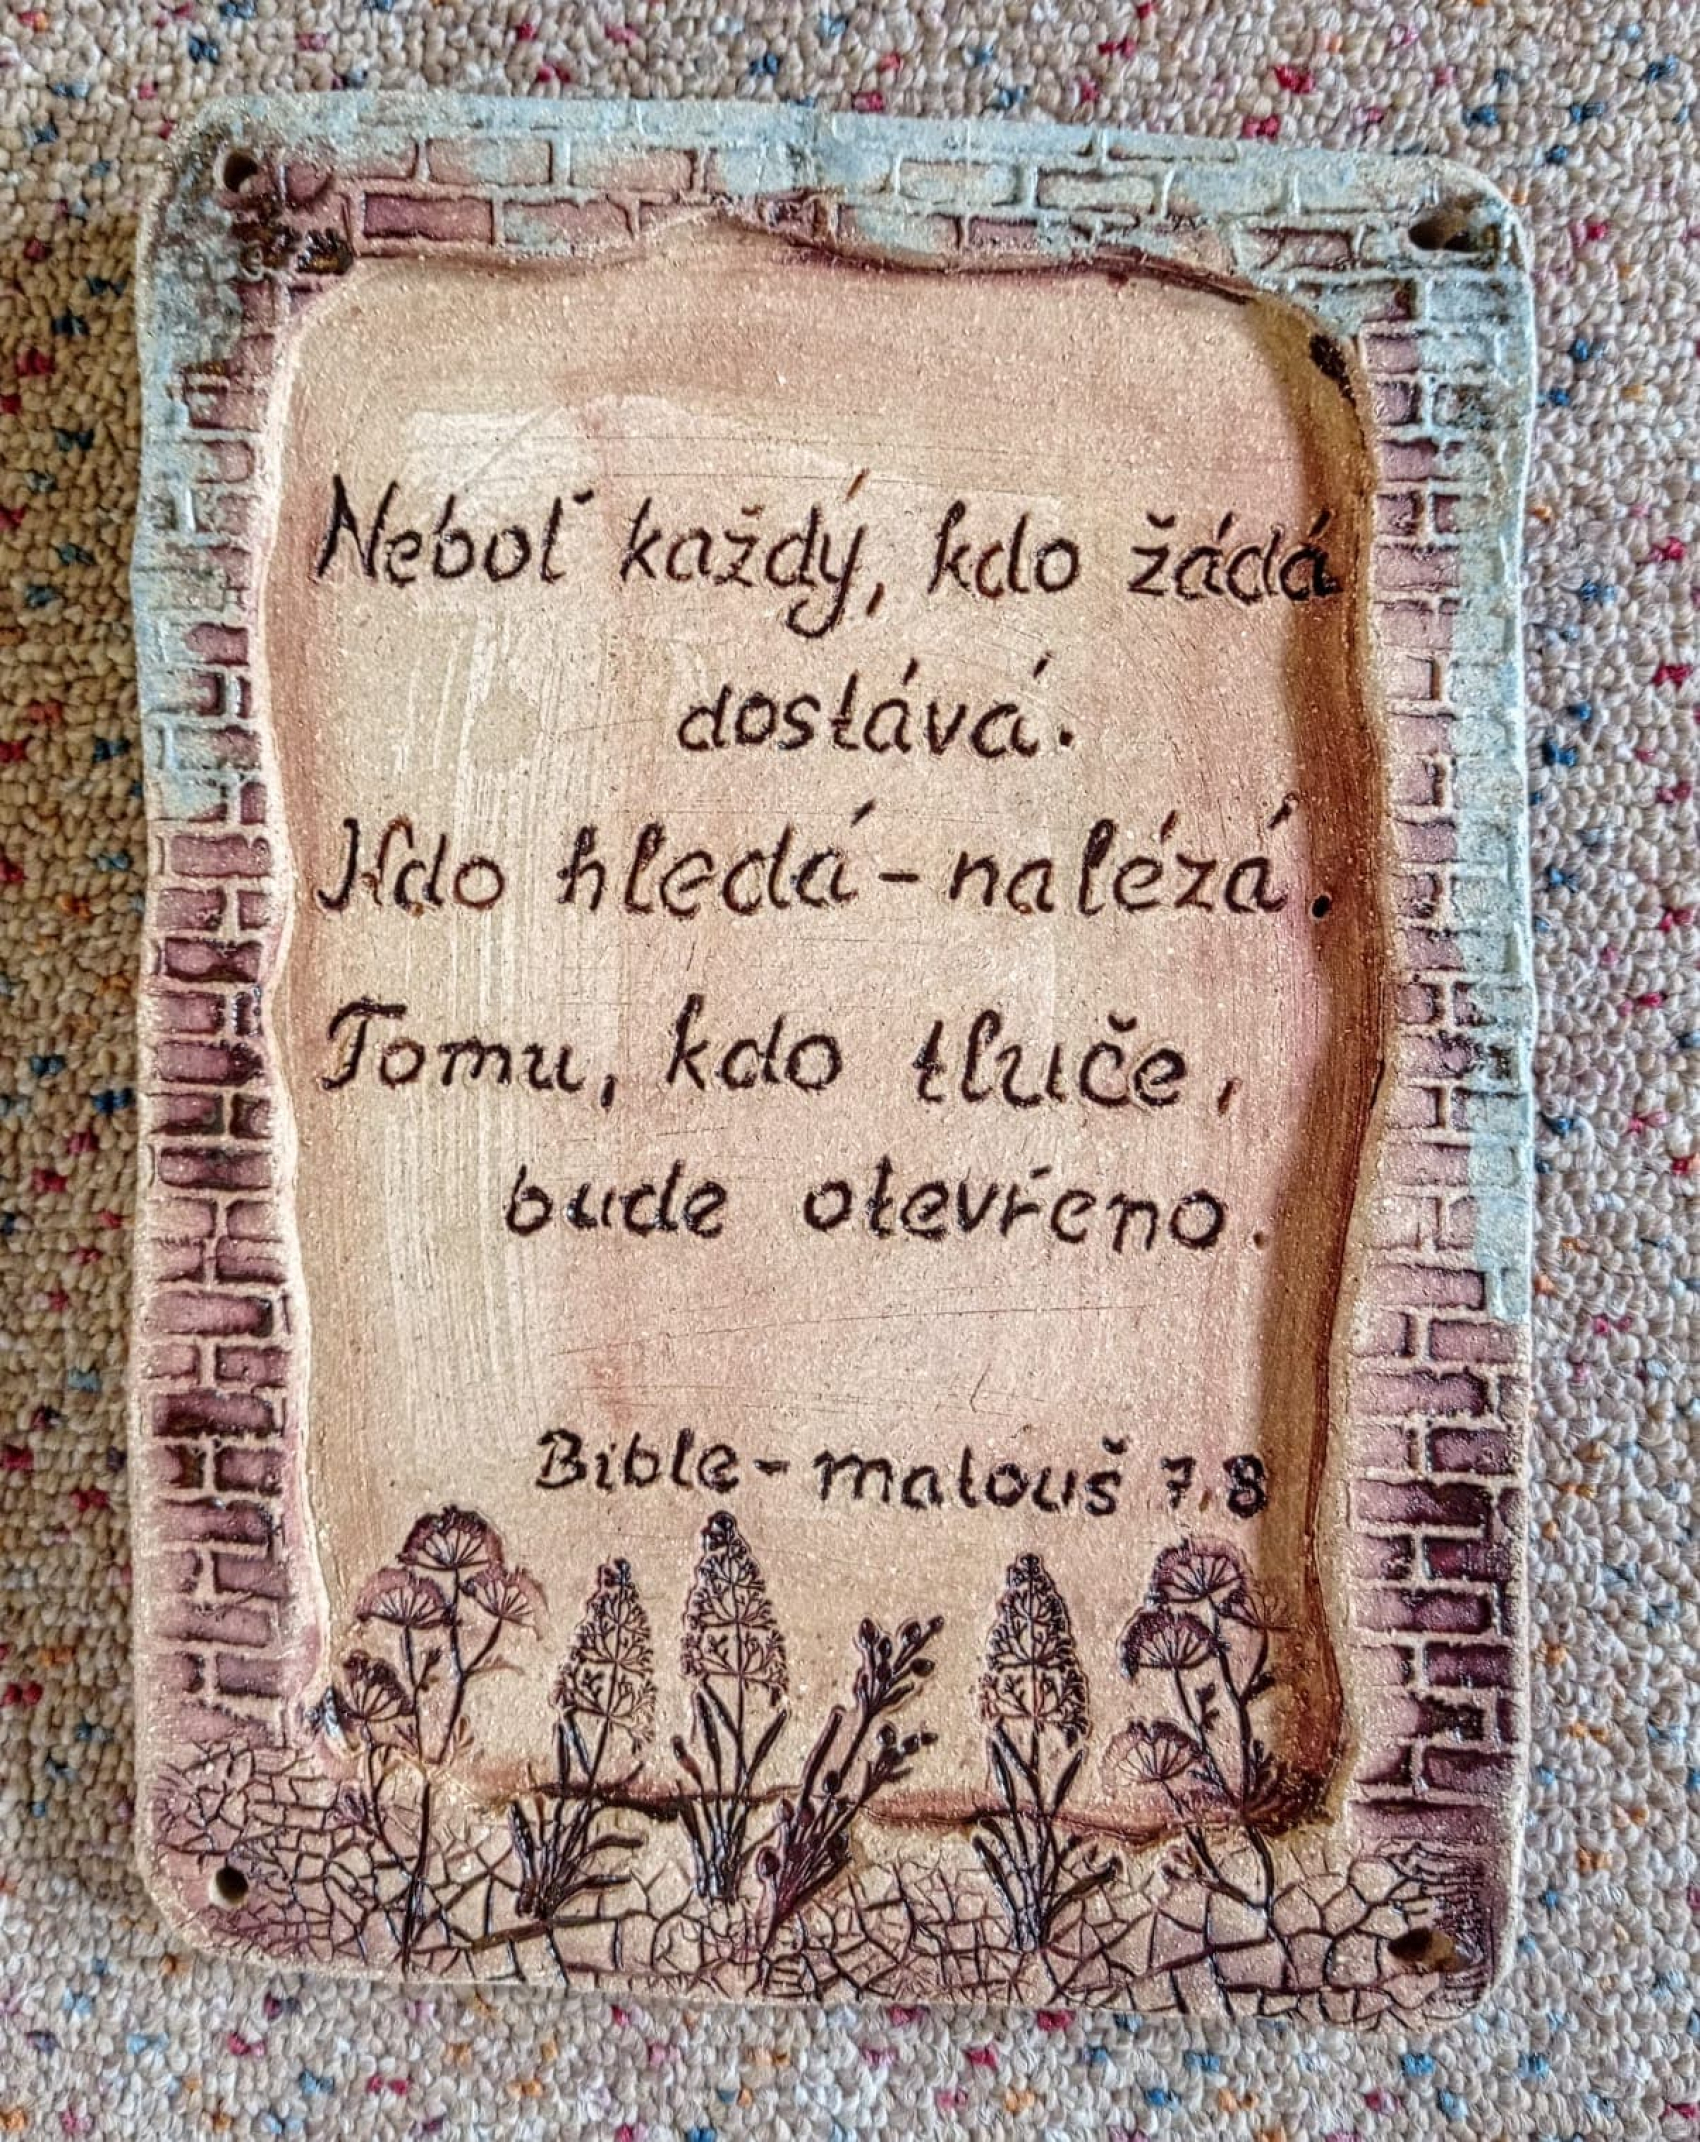 Neboť každý, kdo žádá
dostává.
Kdo hledá - nalézá.
Tomu, kdo tluče,
bude otevřeno.
Bible - matouš 7,8